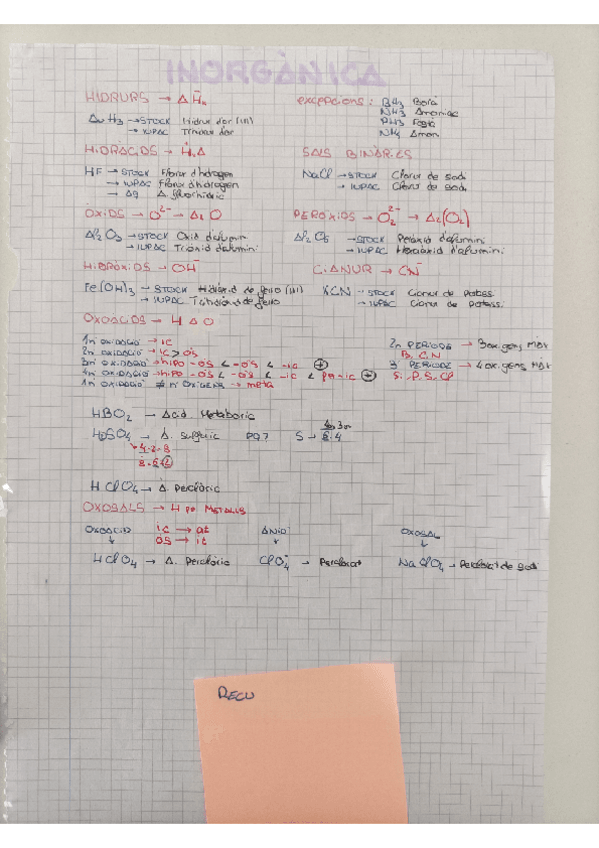 INORGÀNICA
HIDRURS → AHₙ excepcions: BH3 Borà
NH3 Amoníac
AuH3 → STOCK Hidrur d'or (III) PH3 Fosfà
→ IUPAC Trihidrur d'or NH4 Amoni
HIDRÀCIDS → H₁A SALS BINÀRIES
HF → STOCK Fluorur d'hidrogen NaCl → STOCK Clorur de sodi
→ IUPAC Fluorur d'hidrogen → IUPAC Clorur de sodi
→ AQ A. fluorhídric
ÒXIDS → O²⁻ → A₂O PERÒXIDS → O₂²⁻ → A₂(O₂)
Al2O3 → STOCK Òxid d'alumini Al2O6 → STOCK Peròxid d'alumini
→ IUPAC Triòxid d'alumini → IUPAC Hexaòxid d'alumini
HIDRÒXIDS → OH⁻ CIANUR → CN⁻
Fe(OH)3 → STOCK Hidròxid de ferro (III) KCN → STOCK Cianur de potassi
→ IUPAC Trihidròxid de ferro → IUPAC Cianur de potassi
OXOÀCIDS → HAO
1n oxidació → ic 2n PERÍODE → 3 oxígens MÀX
2n oxidació → ic > ós B, C, N
3n oxidació → hipo -ós < -ós < -ic + 3r PERÍODE → 4 oxígens MÀX
4n oxidació → hipo -ós < -ós < -ic < per -ic + Si, P, S, Cl
1n oxidació ≠ nº oxígens → meta
HBO2 → Àcid Metabòric
H2SO4 → A. Sulfúric PQ? S → 6, 4
4·2=8
8-6=2
HClO4 → A. Perclòric
OXOSALS → H per METALLS
OXOÀCID ic → at ANIÓ OXOSAL
↓ ós → it ↓ ↓
HClO4 → A. Perclòric ClO4⁻ → Perclorat NaClO4 → Perclorat de sodi
RECU